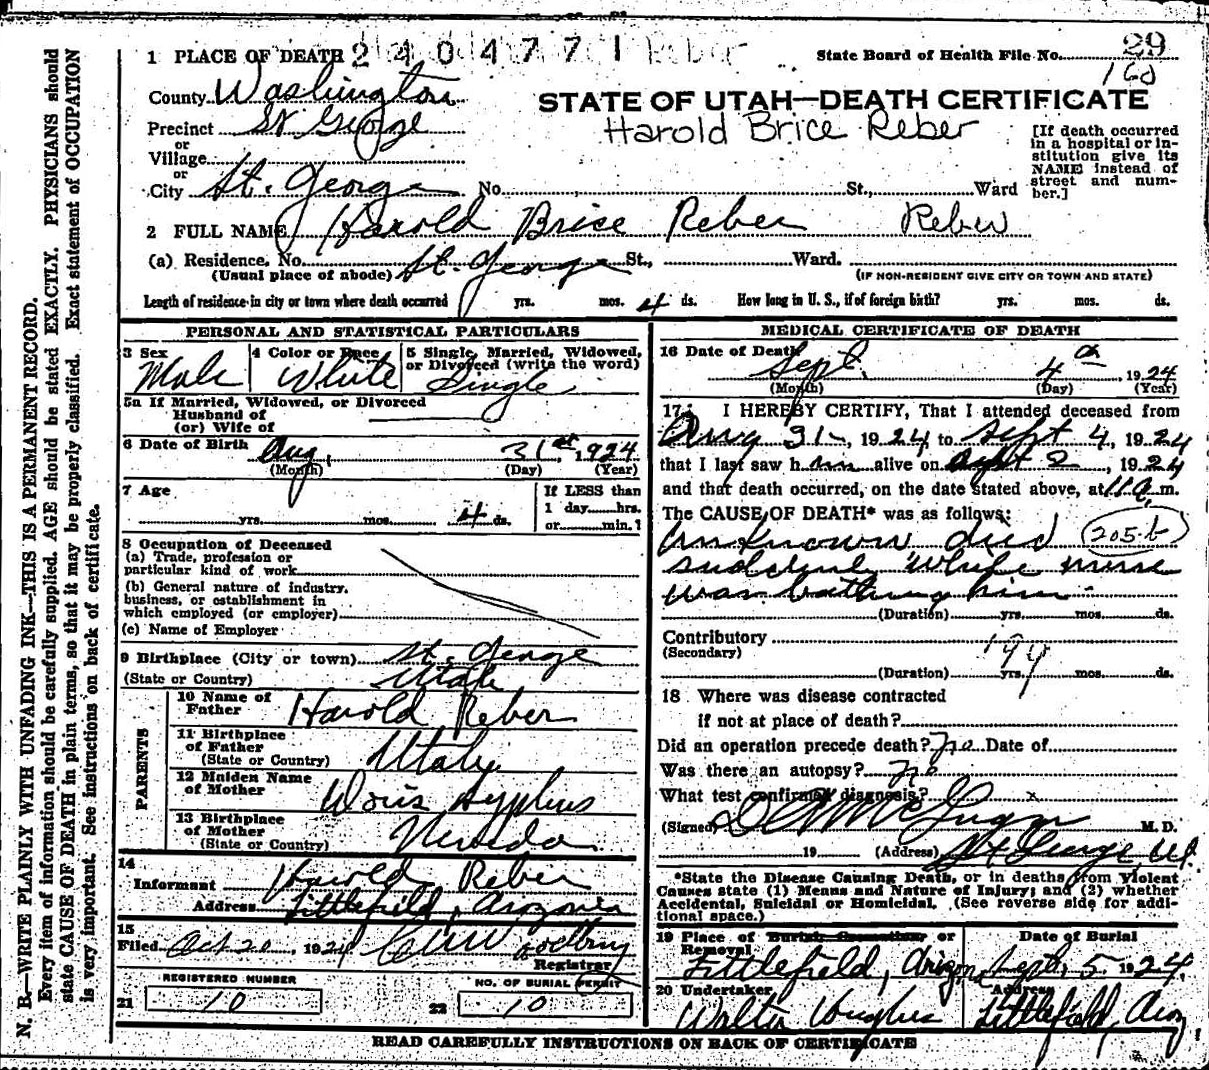 1 PLACE OF DEATH 2 4 0 4 7 7 1 Reber State Board of Health File No. 29
160
County Washington
STATE OF UTAH—DEATH CERTIFICATE
Precinct St George
Harold Brice Reber
[If death occurred in a hospital or institution give its NAME instead of street and number.]
or
Village
or
City St. George No. St., Ward
2 FULL NAME Harold Brice Reber Reber
(a) Residence. No. St. George St., Ward.
(Usual place of abode) (IF NON-RESIDENT GIVE CITY OR TOWN AND STATE)
Length of residence in city or town where death occurred yrs. mos. 4 ds. How long in U. S., if of foreign birth? yrs. mos. ds.
PERSONAL AND STATISTICAL PARTICULARS
3 Sex 4 Color or Race 5 Single, Married, Widowed,
or Divorced (write the word)
Male White Single
5a If Married, Widowed, or Divorced
Husband of
(or) Wife of
6 Date of Birth Aug. 31st, 1924
(Month) (Day) (Year)
7 Age If LESS than
1 day hrs.
yrs. mos. 4 ds. or min.?
8 Occupation of Deceased
(a) Trade, profession or
particular kind of work
(b) General nature of industry,
business, or establishment in
which employed (or employer)
(c) Name of Employer
9 Birthplace (City or town) St. George
(State or Country) Utah
PARENTS
10 Name of
Father Harold Reber
11 Birthplace
of Father
(State or Country) Utah
12 Maiden Name
of Mother
13 Birthplace
of Mother
(State or Country) Nevada
14
Informant Harold Reber
Address Littlefield, Arizona
15
Filed Oct 20, 1924
Registrar
REGISTERED NUMBER NO. OF BURIAL PERMIT
21 10 22 10
MEDICAL CERTIFICATE OF DEATH
16 Date of Death Sept. 4th, 1924
(Month) (Day) (Year)
17. I HEREBY CERTIFY, That I attended deceased from
Aug 31, 1924, to Sept 4, 1924
that I last saw him alive on Sept 2, 1924
and that death occurred, on the date stated above, at 11 a. m.
The CAUSE OF DEATH* was as follows:
Unknown died 205-b
suddenly while nurse
was bathing him
(Duration) yrs. mos. ds.
Contributory
(Secondary) 199
(Duration) yrs. mos. ds.
18 Where was disease contracted
if not at place of death?
Did an operation precede death? No Date of
Was there an autopsy? No
What test confirmed diagnosis? x
(Signed) McGregor M. D.
19 (Address) St George, Ut.
*State the Disease Causing Death, or in deaths from Violent
Causes state (1) Means and Nature of Injury; and (2) whether
Accidental, Suicidal or Homicidal. (See reverse side for addi-
tional space.)
19 Place of Burial, Cremation or
Removal Date of Burial
Littlefield, Arizona Sept. 5 1924
20 Undertaker Address
Walter Hughes Littlefield, Ariz
READ CAREFULLY INSTRUCTIONS ON BACK OF CERTIFICATE
N. B.—WRITE PLAINLY WITH UNFADING INK—THIS IS A PERMANENT RECORD.
Every item of information should be carefully supplied. AGE should be stated EXACTLY. PHYSICIANS should
state CAUSE OF DEATH in plain terms, so that it may be properly classified. Exact statement of OCCUPATION
is very important. See instructions on back of certificate.